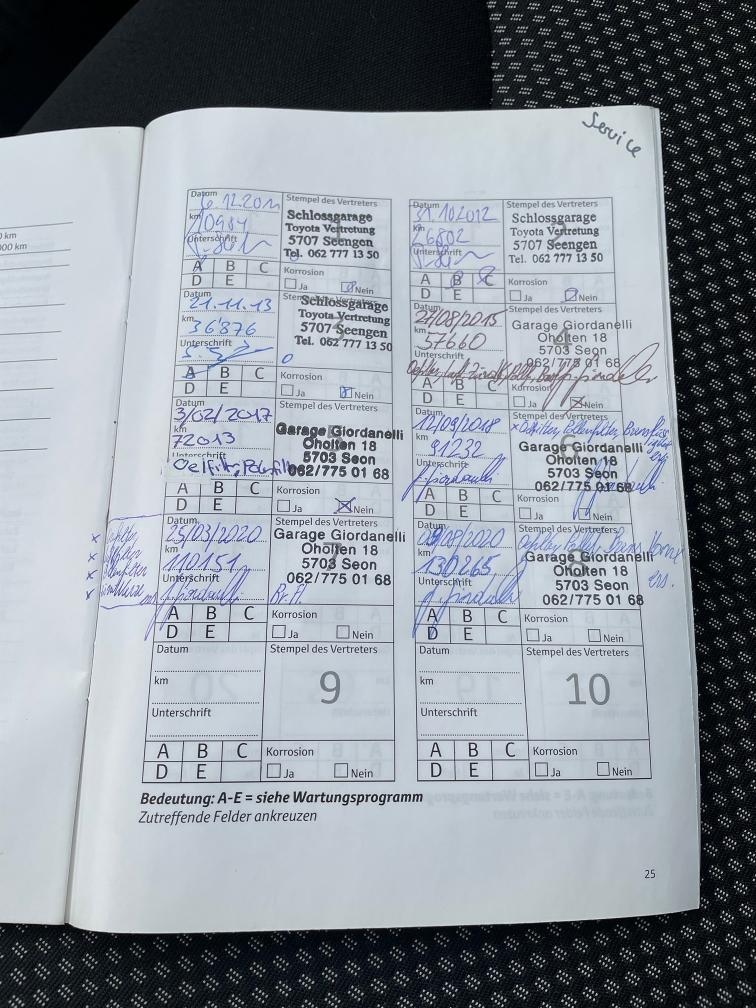 Service
0 km
000 km
Datum
6.12.2011
km
10984
Unterschrift
Stempel des Vertreters
Schlossgarage
Toyota Vertretung
5707 Seengen
Tel. 062 777 13 50
A B C
D E
Korrosion
Ja Nein
Datum
31.10.2012
km
26802
Unterschrift
Stempel des Vertreters
Schlossgarage
Toyota Vertretung
5707 Seengen
Tel. 062 777 13 50
A B C
D E
Korrosion
Ja Nein
Datum
21.11.13
km
36'876
Unterschrift
Stempel des Vertreters
Schlossgarage
Toyota Vertretung
5707 Seengen
Tel. 062 777 13 50
A B C
D E
Korrosion
Ja Nein
Datum
24/08/2015
km
57660
Unterschrift
Stempel des Vertreters
Garage Giordanelli
Oholten 18
5703 Seon
062/775 01 68
A B C
D E
Korrosion
Ja Nein
Datum
3/02/2017
km
72013
Unterschrift
Stempel des Vertreters
Garage Giordanelli
Oholten 18
5703 Seon
062/775 01 68
A B C
D E
Korrosion
Ja Nein
Datum
12/09/2018
km
91232
Unterschrift
Stempel des Vertreters
Garage Giordanelli
Oholten 18
5703 Seon
062/775 01 68
A B C
D E
Korrosion
Ja Nein
Datum
25/03/2020
km
110151
Unterschrift
Stempel des Vertreters
Garage Giordanelli
Oholten 18
5703 Seon
062/775 01 68
A B C
D E
Korrosion
Ja Nein
Datum
km
130265
Unterschrift
Stempel des Vertreters
Garage Giordanelli
Oholten 18
5703 Seon
062/775 01 68
A B C
D E
Korrosion
Ja Nein
Datum
km
Unterschrift
Stempel des Vertreters
9
A B C
D E
Korrosion
Ja Nein
Datum
km
Unterschrift
Stempel des Vertreters
10
A B C
D E
Korrosion
Ja Nein
Bedeutung: A-E = siehe Wartungsprogramm
Zutreffende Felder ankreuzen
25